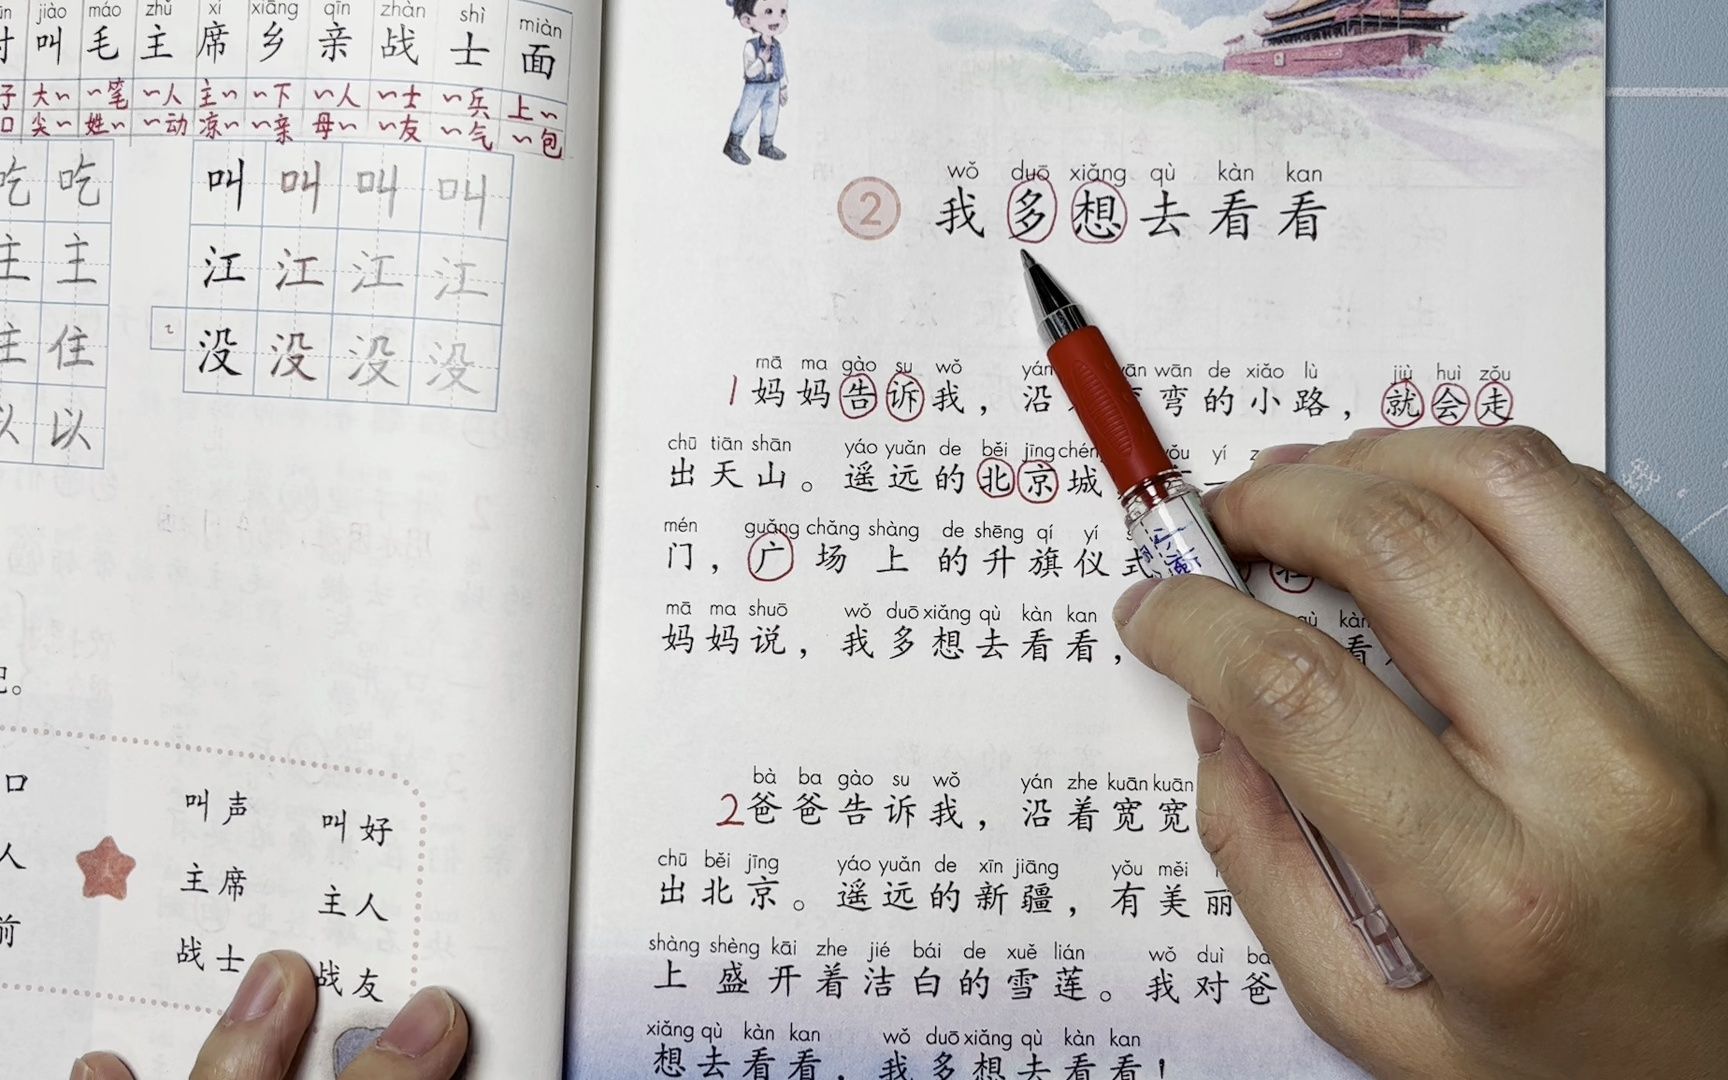 jiào máo zhǔ xí xiāng qīn zhàn shì miàn
叫 毛 主 席 乡 亲 战 士 面
子 大~ ~笔 ~人 主~ ~下 ~人 ~士 ~兵 上~
口 尖~ 姓~ ~动 凉~ ~亲 母~ ~友 ~气 ~包
吃 吃 叫 叫 叫 叫
主 主 江 江 江 江
主 住 没 没 没 没
以 以
口 叫声 叫好
人 主席 主人
前 战士 战友
wǒ duō xiǎng qù kàn kan
2 我多想去看看
mā ma gào su wǒ yán wān de xiǎo lù jiù huì zǒu
1 妈妈告诉我，沿 弯的小路，就会走
chū tiān shān yáo yuǎn de běi jīng yǒu yí
出天山。遥远的北京城 一
mén guǎng chǎng shàng de shēng qí yí
门，广场上的升旗仪式
mā ma shuō wǒ duō xiǎng qù kàn kan qù kàn
妈妈说，我多想去看看， 看
bà ba gào su wǒ yán zhe kuān kuān
2 爸爸告诉我，沿着宽宽
chū běi jīng yáo yuǎn de xīn jiāng yǒu měi
出北京。遥远的新疆，有美丽
shàng shèng kāi zhe jié bái de xuě lián wǒ duì bà
上盛开着洁白的雪莲。我对爸
xiǎng qù kàn kan wǒ duō xiǎng qù kàn kan
想去看看，我多想去看看！